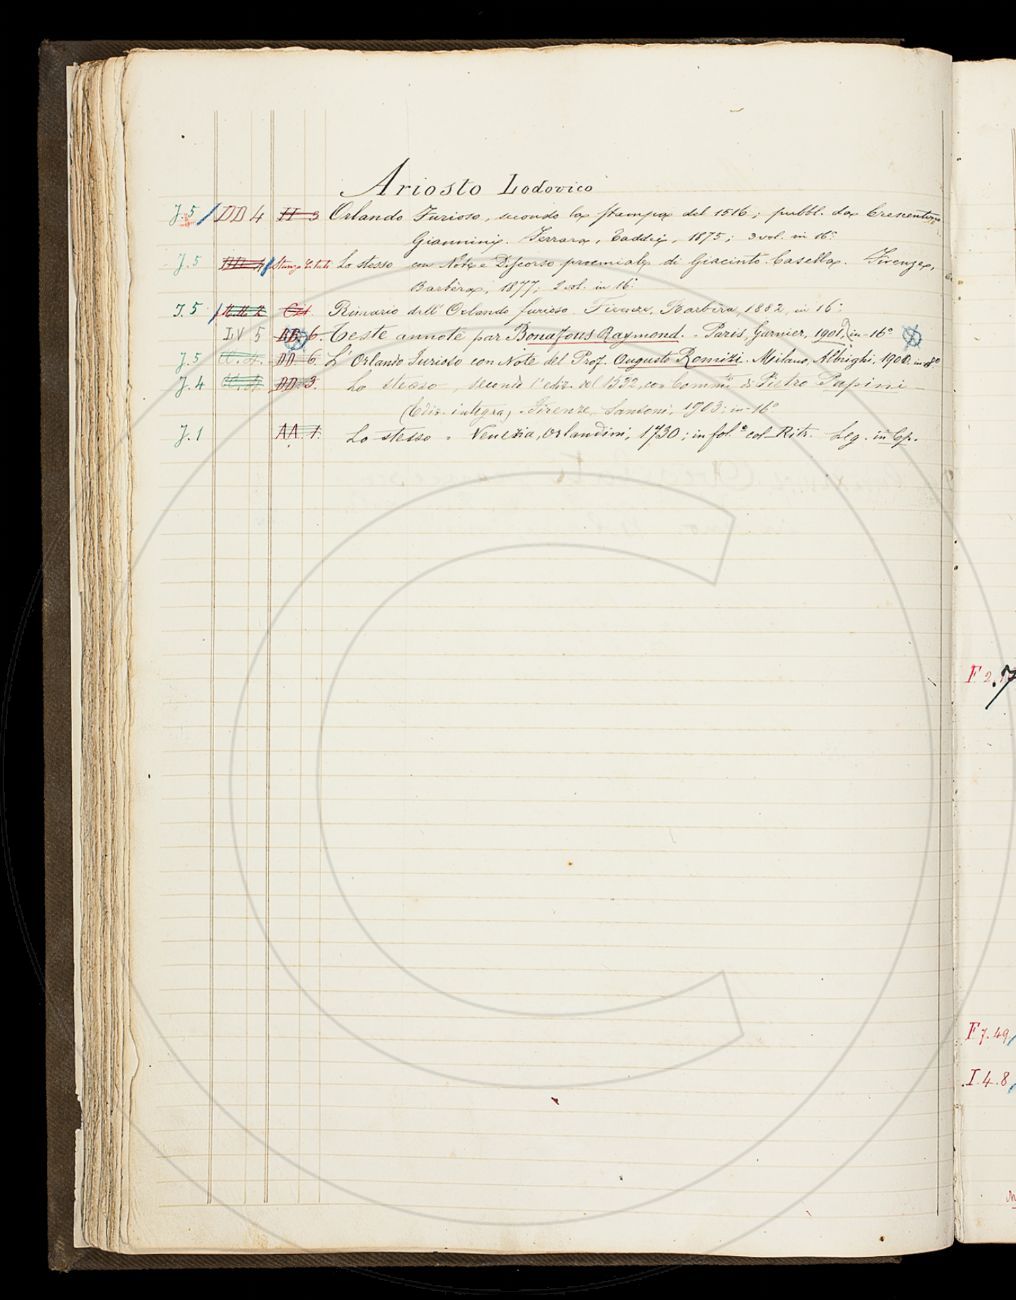 Ariosto Lodovico
J. 5 DD 4 H 3 Orlando Furioso, secondo la stampa del 1516; pubbl. da Crescentino
Giannini. Ferrara, Taddei, 1875; 3 vol. in 16°
J. 5 Lo stesso con Note e Discorso proemiale di Giacinto Casella. Firenze,
Barbèra, 1877; 2 vol. in 16°
J. 5 Rimario dell'Orlando furioso. Firenze, Barbèra, 1882, in 16°
IV 5 BB. 6. Teste annoté par Bonafous Raymond. - Paris, Garnier, 1901, in-16°
J. 5 DD. 6. L'Orlando Furioso con Note del Prof. Augusto Romizi. Milano, Albrighi, 1900. in 8°
J. 4 DD. 3. Lo stesso, secondo l'ediz. del 1532, con Comm. di Pietro Papini
(Ediz. integra). Firenze, Sansoni, 1903; in-16°
J. 1 AA. 1. Lo stesso. Venezia, Orlandini, 1730; in fol.° col Ritr. Leg. in Cp.
F 2.
F 7. 49
I. 4. 8